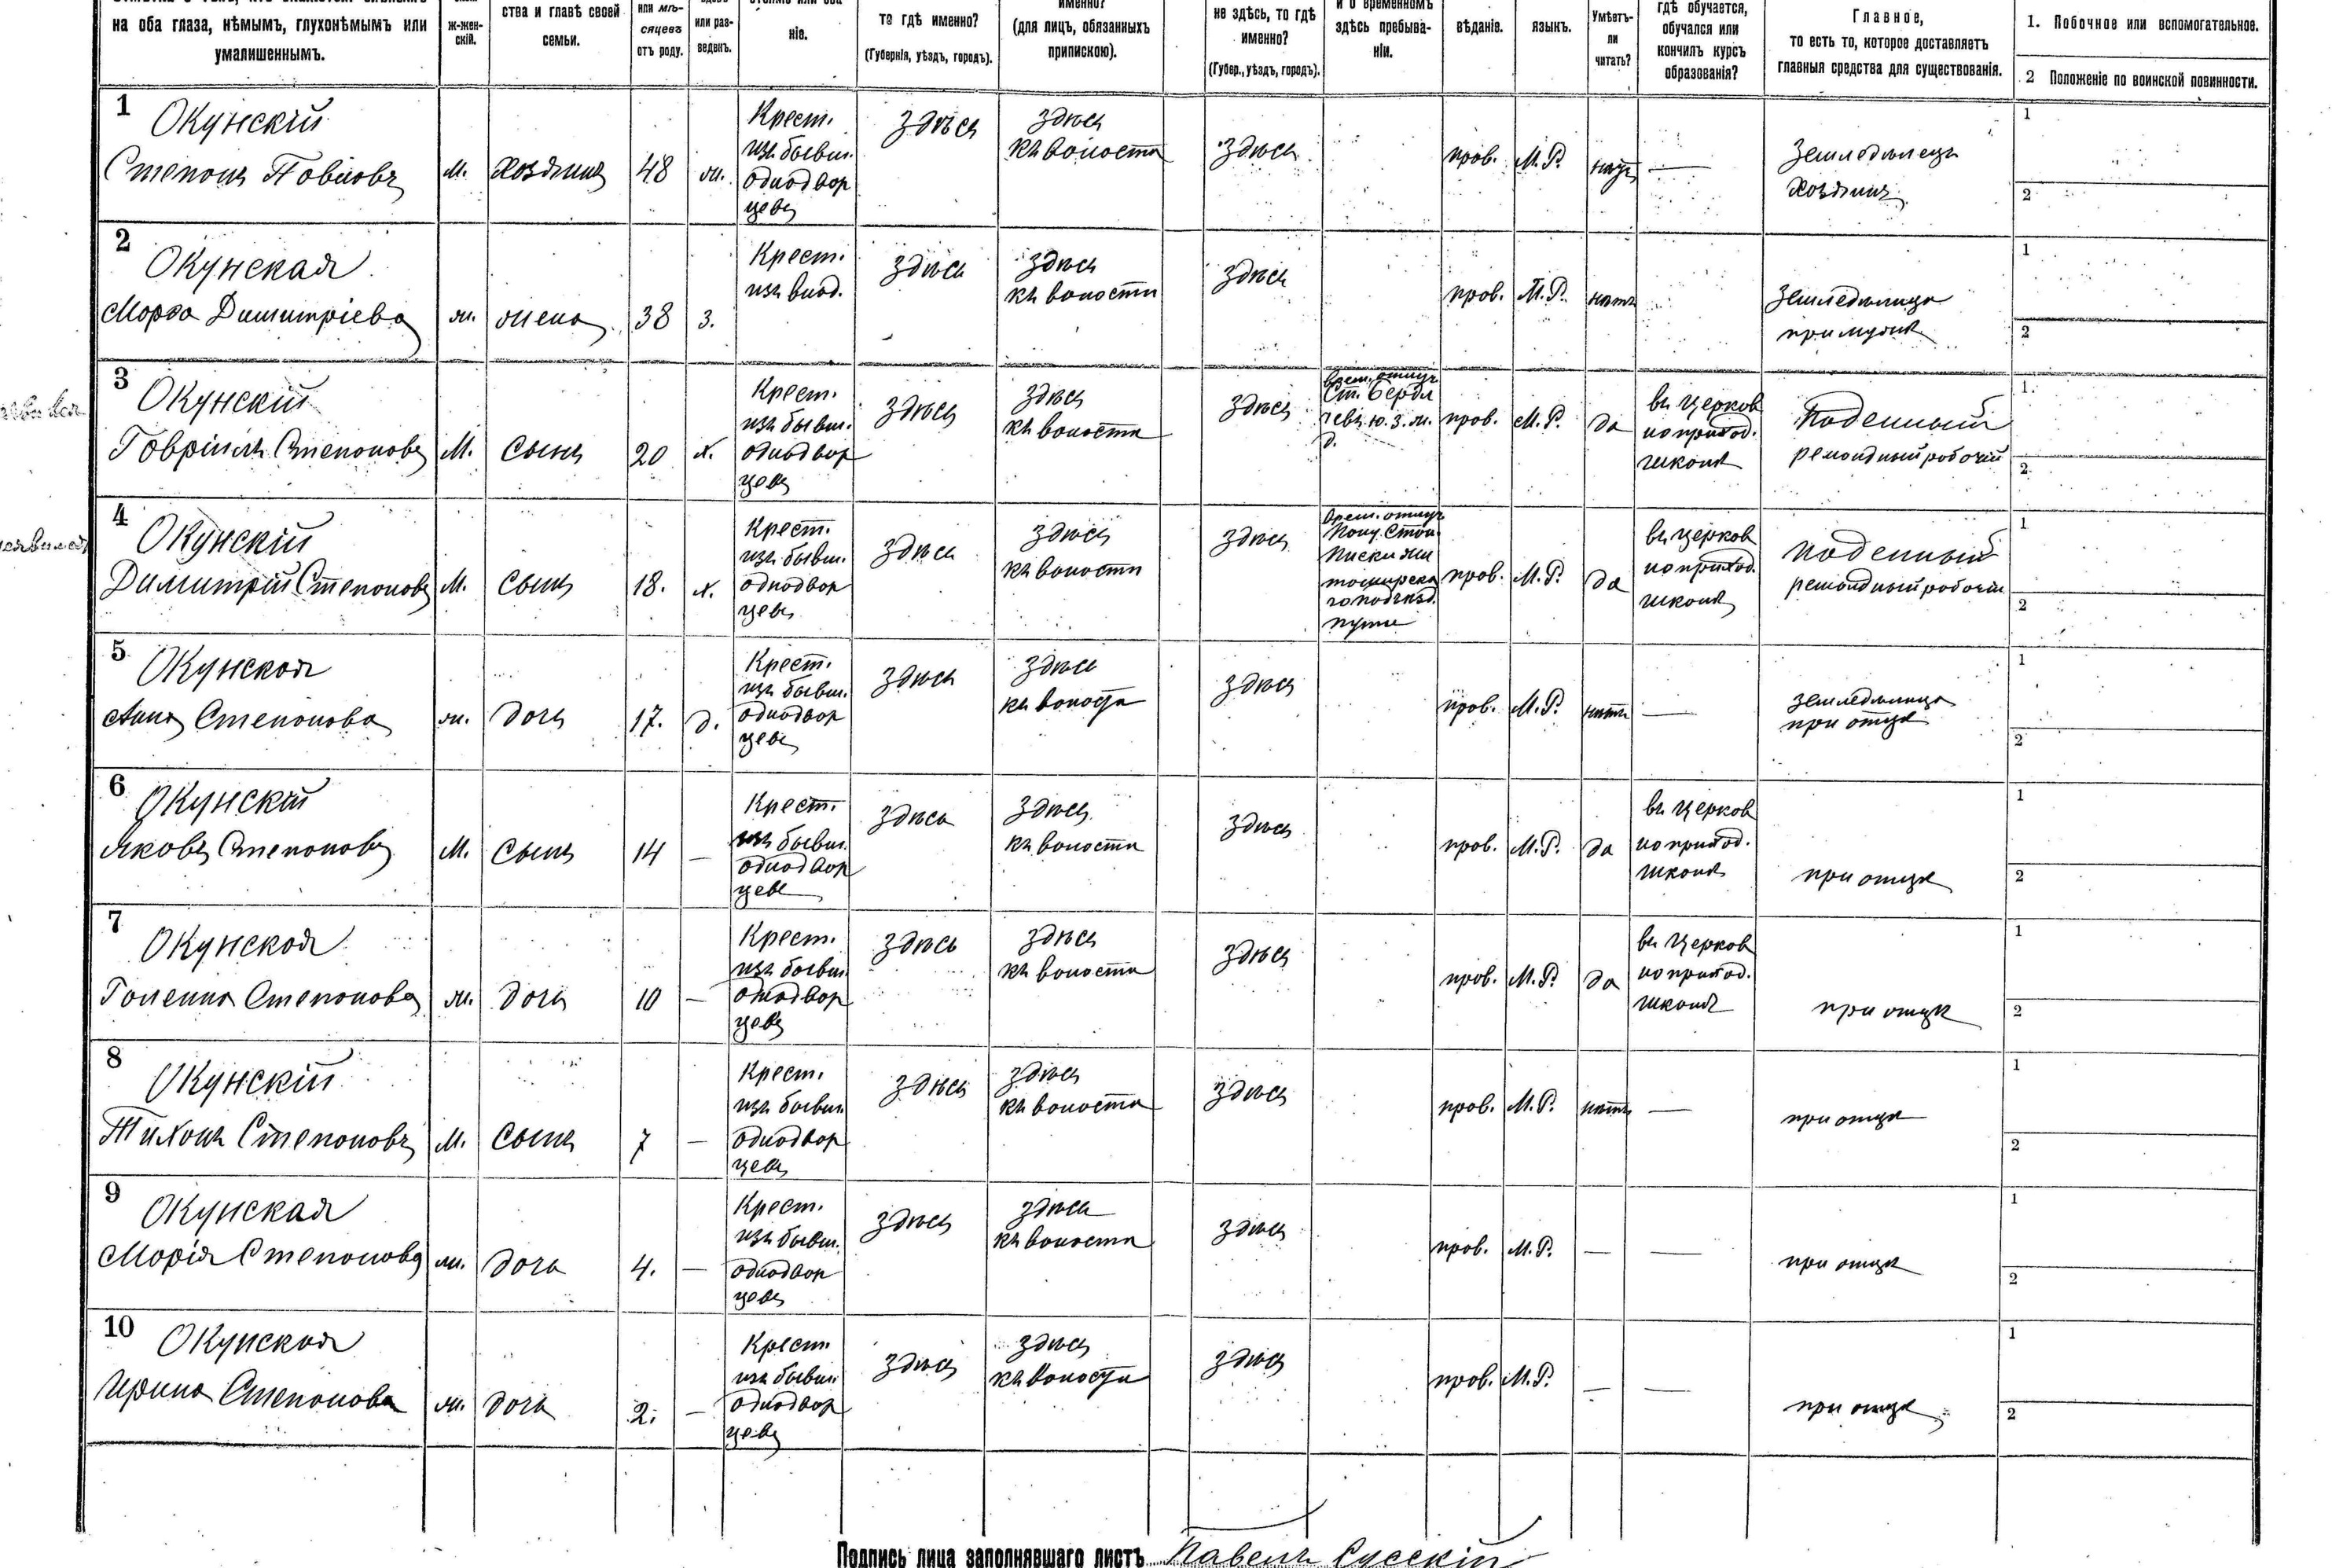 на оба глаза, нѣмымъ, глухонѣмымъ или
умалишеннымъ.
ж-жен-
скій.
ства и главѣ своей
семьи.
или мѣ-
сяцевъ
отъ роду.
или раз-
веденъ.
ніе.
то гдѣ именно?
(Губернія, уѣздъ, городъ).
именно?
(для лицъ, обязанныхъ
припискою).
не здѣсь, то гдѣ
именно?
(Губер., уѣздъ, городъ).
и о временномъ
здѣсь пребыва-
ніи.
вѣданіе.
языкъ.
Умѣетъ-
ли
читать?
гдѣ обучается,
обучался или
кончилъ курсъ
образованія?
Главное,
то есть то, которое доставляетъ
главныя средства для существованія.
1. Побочное или вспомогательное.
2 Положеніе по воинской повинности.
1
Окунскій
Степанъ Павловъ
м.
хозяинъ
48
ж.
Крест.
изъ бывш.
однодвор
цевъ
здѣсь
здѣсь
къ волости
здѣсь
прав.
М.Р.
нѣтъ
—
Земледѣлецъ
хозяинъ
1
2
2
Окунская
Марѳа Димитріева
ж.
жена
38
з.
Крест.
изъ влад.
здѣсь
здѣсь
къ волости
здѣсь
прав.
М.Р.
нѣтъ
Земледѣлица
при мужѣ
1
2
3
Окунскій
Гавріилъ Степановъ
М.
сынъ
20
х.
Крест.
изъ бывш.
однодвор
цевъ
здѣсь
здѣсь
къ волости
здѣсь
врем. отлуч.
Ст. Берди
чевъ ю. з. ж.
д.
прав.
М.Р.
да
въ церков
но приход.
школѣ
Поденный
ремондный рабочій
1
2
4
Окунскій
Димитрій Степановъ
М.
сынъ
18.
х.
Крест.
изъ бывш.
однодвор
цевъ
здѣсь
здѣсь
къ волости
здѣсь
врем. отлуч.
пути
прав.
М.Р.
да
въ церков
но приход.
школѣ
Поденный
ремондный рабочій
1
2
5
Окунская
Анна Степанова
ж.
дочь
17.
д.
Крест.
изъ бывш.
однодвор
цевъ
здѣсь
здѣсь
къ волости
здѣсь
прав.
М.Р.
нѣтъ
—
Земледѣлица
при отцѣ
1
2
6
Окунскій
Яковъ Степановъ
М.
сынъ
14
—
Крест.
изъ бывш.
однодвор
цевъ
здѣсь
здѣсь
къ волости
здѣсь
прав.
М.Р.
да
въ церков
но приход.
школѣ
при отцѣ
1
2
7
Окунская
Галенна Степанова
ж.
дочь
10
—
Крест.
изъ бывш.
однодвор
цевъ
здѣсь
здѣсь
къ волости
здѣсь
прав.
М.Р.
да
въ церков
но приход.
школѣ
при отцѣ
1
2
8
Окунскій
Тихонъ Степановъ
М.
сынъ
7
—
Крест.
изъ бывш.
однодвор
цевъ
здѣсь
здѣсь
къ волости
здѣсь
прав.
М.Р.
нѣтъ
—
при отцѣ
1
2
9
Окунская
Марія Степанова
ж.
дочь
4.
—
Крест.
изъ бывш.
однодвор
цевъ
здѣсь
здѣсь
къ волости
здѣсь
прав.
М.Р.
—
—
при отцѣ
1
2
10
Окунская
Ирина Степанова
ж.
дочь
2.
—
Крест.
изъ бывш.
однодвор
цевъ
здѣсь
здѣсь
къ волости
здѣсь
прав.
М.Р.
—
—
при отцѣ
1
2
Подпись лица заполнявшаго листъ Павелъ Сусскій